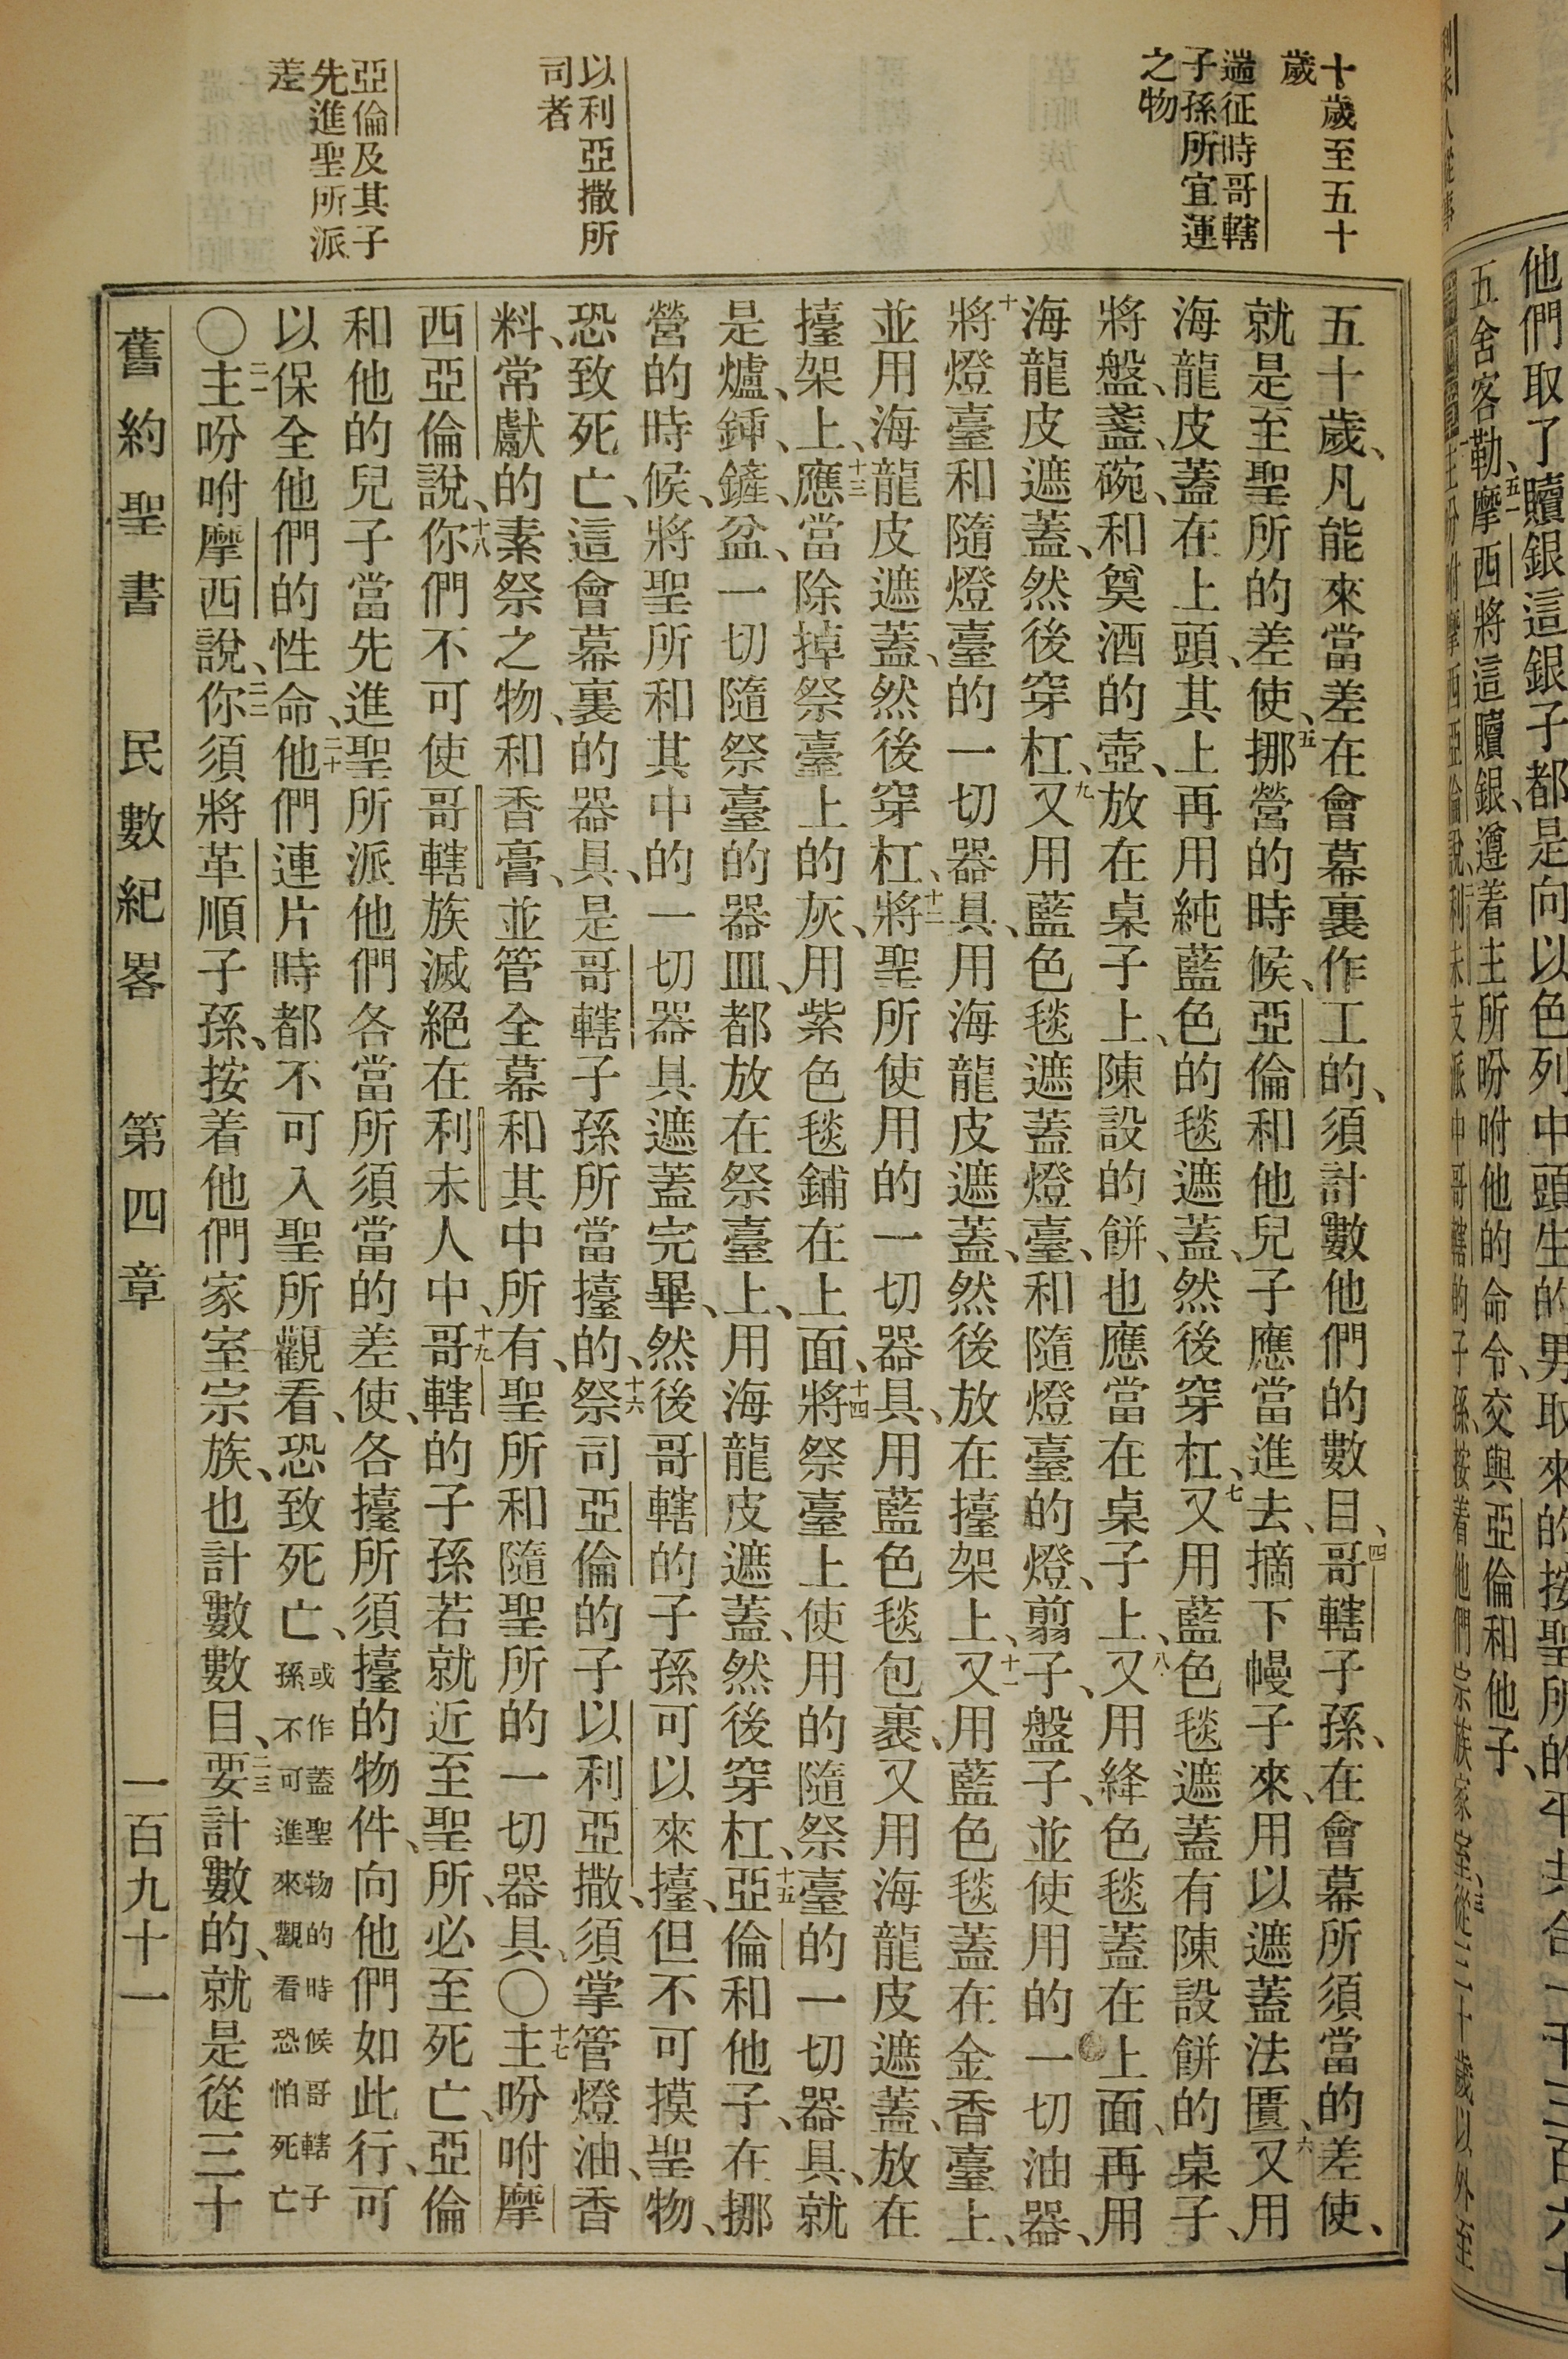 他們取了贖銀這銀子都是向以色列中頭生的男取來的按聖所的平共合一千三百六十
五舍客勒、五一摩西將這贖銀、遵着主所吩咐他的命令、交與亞倫和他子、
主吩咐摩西亞倫說、利未支派中哥轄的子孫、按着他們宗族家室、從三十歲以外至
十歲至五十
歲
遄征時哥轄
子孫所宜運
之物
以利亞撒所
司者
亞倫及其子
先進聖所派
差
五十歲、凡能來當差在會幕裏作工的、須計數他們的數目、四哥轄子孫、在會幕所須當的差使、
就是至聖所的差使、五挪營的時候、亞倫和他兒子應當進去、摘下幔子來、用以遮蓋法匱、六又用
海龍皮蓋在上頭、其上再用純藍色的毯遮蓋、然後穿杠、七又用藍色毯遮蓋有陳設餅的桌子、
將盤、盞、碗、和奠酒的壺、放在桌子上、陳設的餅、也應當在桌子上、八又用絳色毯蓋在上面、再用
海龍皮遮蓋、然後穿杠、九又用藍色毯遮蓋燈臺、和隨燈臺的燈、翦子、盤子、並使用的一切油器、
十將燈臺和隨燈臺的一切器具、用海龍皮遮蓋、然後放在擡架上、十一又用藍色毯蓋在金香臺上、
並用海龍皮遮蓋、然後穿杠、十二將聖所使用的一切器具、用藍色毯包裹、又用海龍皮遮蓋、放在
擡架上、十三應當除掉祭臺上的灰、用紫色毯鋪在上面、十四將祭臺上使用的隨祭臺的一切器具、就
是爐、鍤、鏟、盆、一切隨祭臺的器皿、都放在祭臺上、用海龍皮遮蓋、然後穿杠、十五亞倫和他子、在挪
營的時候、將聖所和其中的一切器具遮蓋完畢、然後哥轄的子孫可以來擡、但不可摸聖物、
恐致死亡、這會幕裏的器具、是哥轄子孫所當擡的、十六祭司亞倫的子以利亞撒、須掌管燈油、香
料、常獻的素祭之物、和香膏、並管全幕和其中所有、聖所和隨聖所的一切器具、〇十七主吩咐摩
西亞倫說、十八你們不可使哥轄族滅絕在利未人中、十九哥轄的子孫若就近至聖所、必至死亡、亞倫
和他的兒子當先進聖所派他們各當所須當的差使、各擡所須擡的物件、向他們如此行、可
以保全他們的性命、二十他們連片時都不可入聖所觀看、恐致死亡、或作蓋聖物的時候哥轄子孫不可進來觀看恐怕死亡
〇二一主吩咐摩西說、二二你須將革順子孫、按着他們家室宗族、也計數數目、二三要計數的、就是從三十
舊約聖書 民數紀畧 第四章 一百九十一